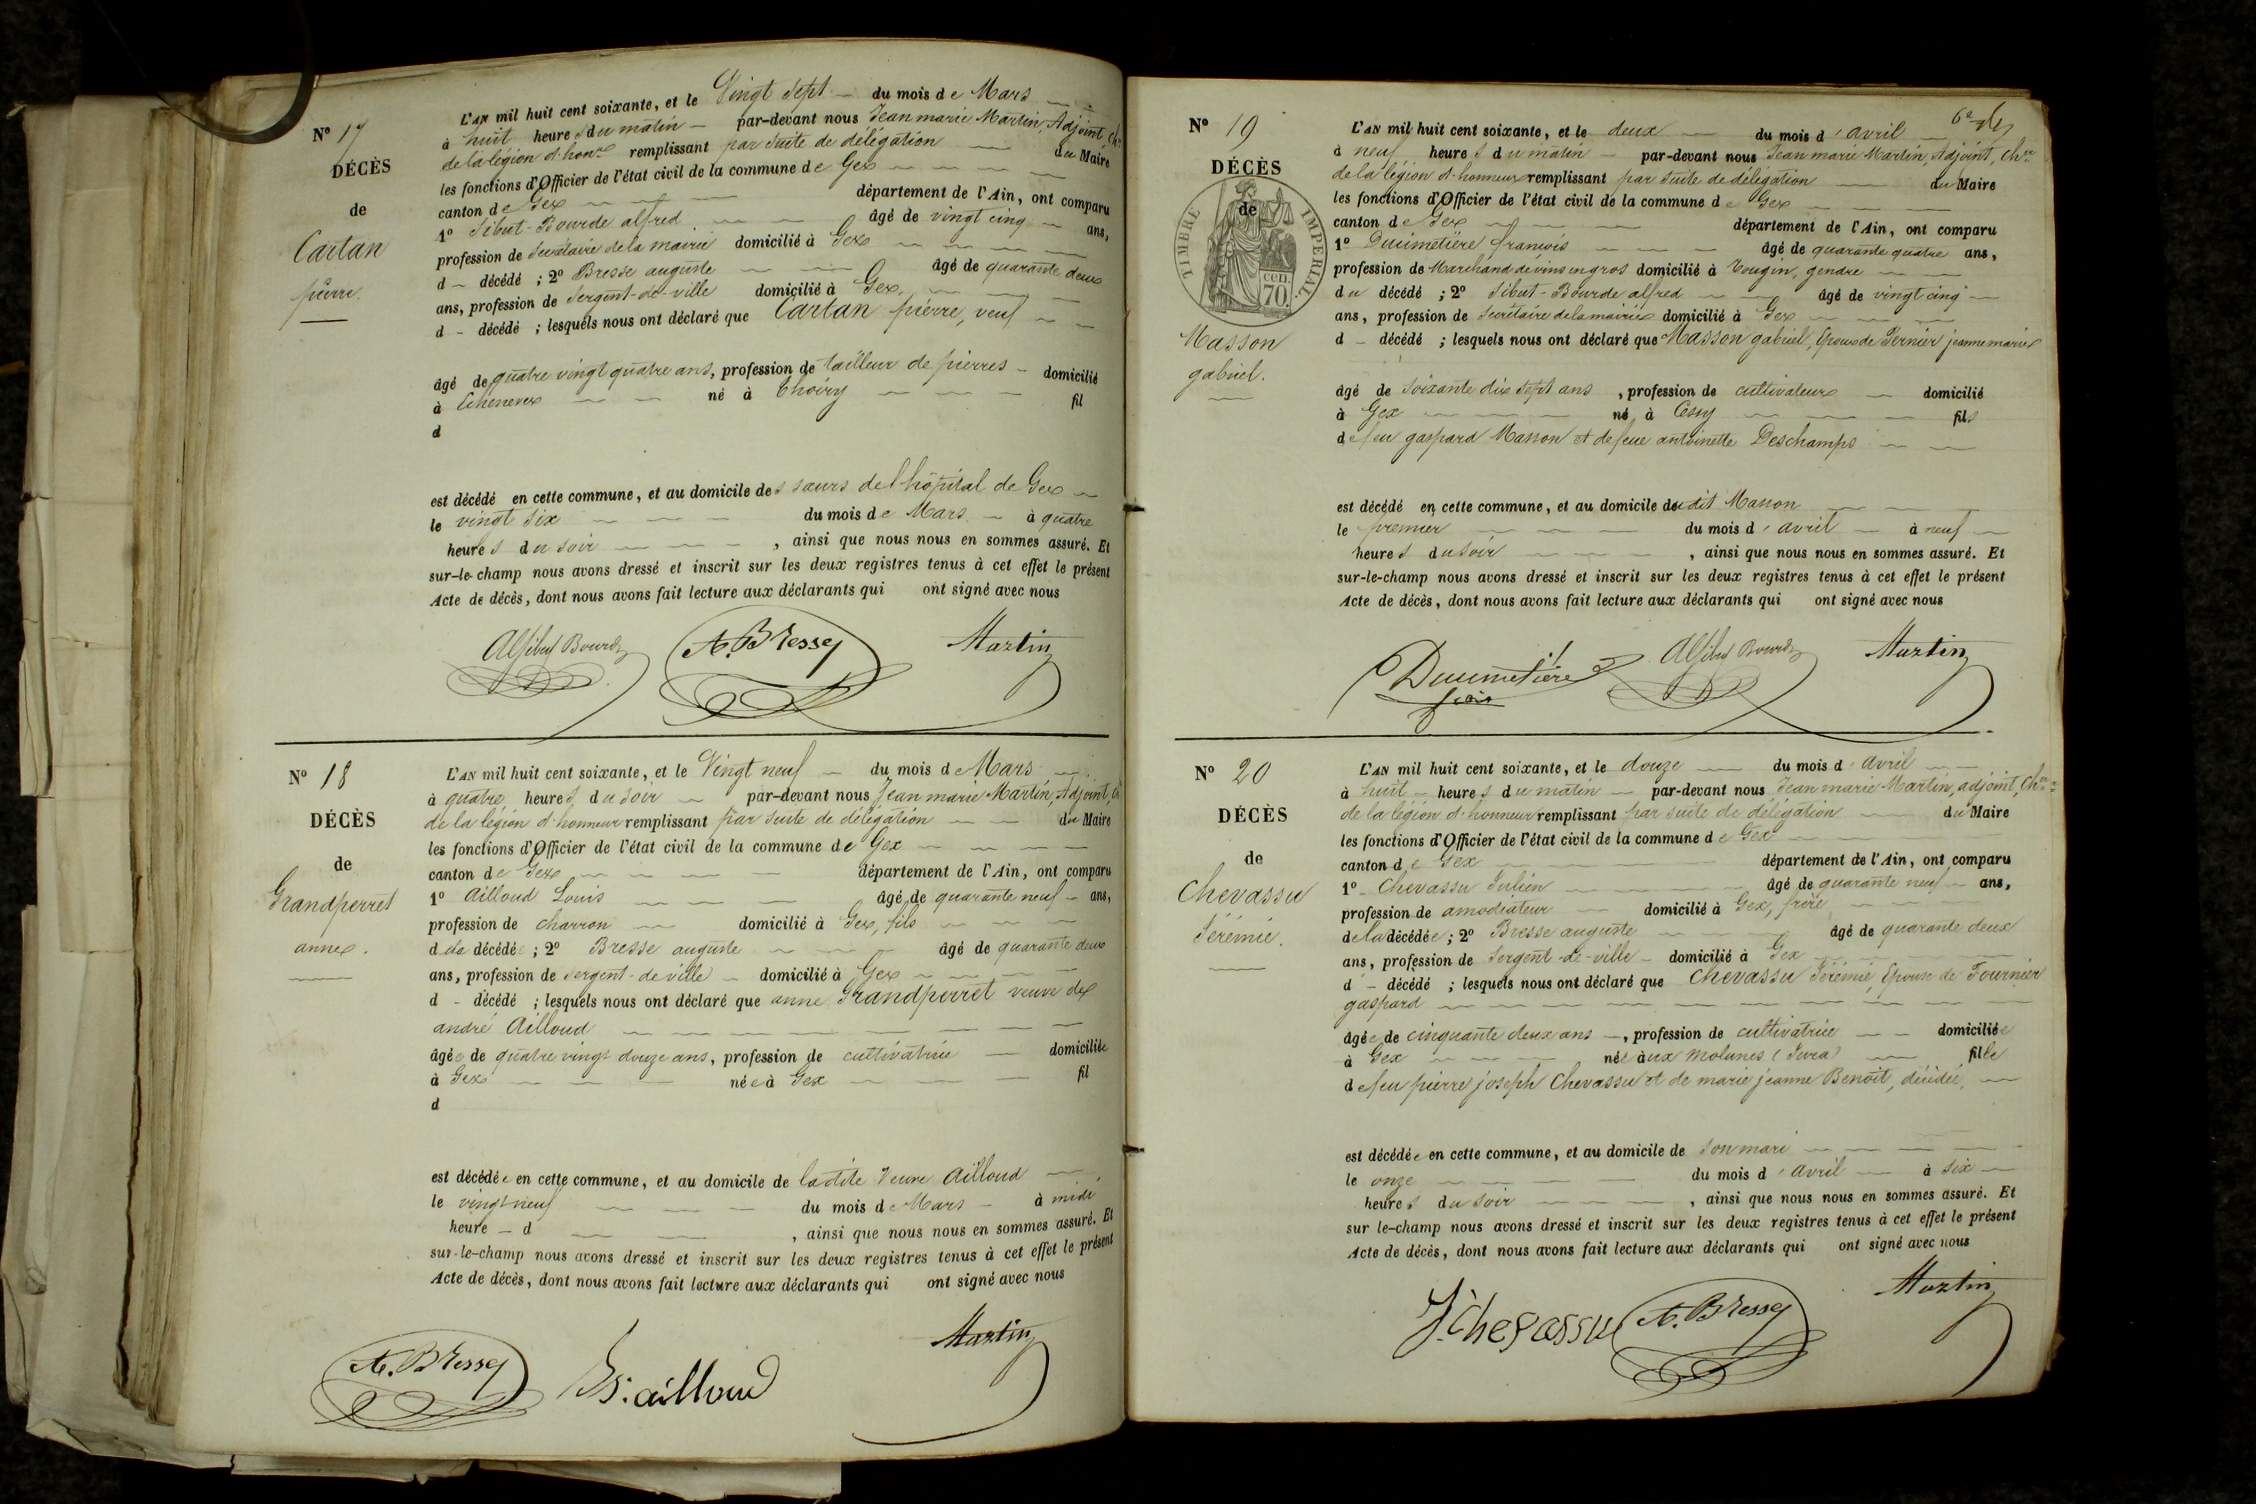 N° 17
DÉCÈS
de
Cartan
pierre.
L'AN mil huit cent soixante, et le Vingt sept du mois de Mars
à huit heures du matin par-devant nous Jean marie Martin, Adjoint, Chr
de la légion d'honr remplissant par suite de délégation du Maire
les fonctions d'Officier de l'état civil de la commune de Gex
canton de Gex département de l'Ain, ont comparu
1° Sibut-Bourde alfred âgé de vingt cinq ans,
profession de Secrétaire de la mairie domicilié à Gex
d décédé ; 2° Bresse auguste âgé de quarante deux
ans, profession de Sergent-de-ville domicilié à Gex,
d décédé ; lesquels nous ont déclaré que Cartan pierre, veuf
âgé de quatre vingt quatre ans, profession de tailleur de pierres domicilié
à Echenevex né à Thoiry fil
d
est décédé en cette commune, et au domicile des sœurs de l'hôpital de Gex
le vingt six du mois de Mars à quatre
heures du soir , ainsi que nous nous en sommes assuré. Et
sur-le-champ nous avons dressé et inscrit sur les deux registres tenus à cet effet le présent
Acte de décès, dont nous avons fait lecture aux déclarants qui ont signé avec nous
A. Bresse Martin
N° 18
DÉCÈS
de
Grandperret
anne.
L'AN mil huit cent soixante, et le Vingt neuf du mois de Mars
à quatre heures du soir par-devant nous Jean marie Martin, Adjoint, Ch
de la légion d'honneur remplissant par suite de délégation du Maire
les fonctions d'Officier de l'état civil de la commune de Gex
canton de Gex département de l'Ain, ont comparu
1° Ailloud Louis âgé de quarante neuf ans,
profession de charron domicilié à Gex, fils
de la décédée ; 2° Bresse auguste âgé de quarante deux
ans, profession de Sergent-de-ville domicilié à Gex
d décédé ; lesquels nous ont déclaré que anne Grandperret veuve de
andré Ailloud
âgée de quatre vingt douze ans, profession de cultivatrice domiciliée
à Gex née à Gex fil
d
est décédée en cette commune, et au domicile de ladite Veuve Ailloud
le vingt neuf du mois de Mars à midi
heure d , ainsi que nous nous en sommes assuré. Et
sur-le-champ nous avons dressé et inscrit sur les deux registres tenus à cet effet le présent
Acte de décès, dont nous avons fait lecture aux déclarants qui ont signé avec nous
A. Bresse ailloud Martin
N° 19
DÉCÈS
de
TIMBRE IMPERIAL
cen. 70.
Masson
gabriel.
L'AN mil huit cent soixante, et le deux du mois d'avril
à neuf heures du matin par-devant nous Jean marie Martin, Adjoint, Chr
de la légion d'honneur remplissant par suite de délégation du Maire
les fonctions d'Officier de l'état civil de la commune de Gex
canton de Gex département de l'Ain, ont comparu
1° Ducimetière françois âgé de quarante quatre ans,
profession de Marchand de vins en gros domicilié à Tougin, gendre
du décédé ; 2° Sibut-Bourde alfred âgé de vingt cinq
ans, profession de Secrétaire de la mairie domicilié à Gex
d décédé ; lesquels nous ont déclaré que Masson gabriel, Epoux de Pernier jeanne marie
âgé de soixante dix sept ans , profession de cultivateur domicilié
à Gex né à Cessy fils
de feu gaspard Masson et de feue antoinette Deschamps
est décédé en cette commune, et au domicile dudit Masson
le premier du mois d'avril à neuf
heures du soir , ainsi que nous nous en sommes assuré. Et
sur-le-champ nous avons dressé et inscrit sur les deux registres tenus à cet effet le présent
Acte de décès, dont nous avons fait lecture aux déclarants qui ont signé avec nous
Ducimetière Martin
N° 20
DÉCÈS
de
Chevassu
Jérémie.
L'AN mil huit cent soixante, et le douze du mois d'avril
à huit heures du matin par-devant nous Jean marie Martin, adjoint, Chr
de la légion d'honneur remplissant par suite de délégation du Maire
les fonctions d'Officier de l'état civil de la commune de Gex
canton de Gex département de l'Ain, ont comparu
1° Chevassu Julien âgé de quarante neuf ans,
profession de amodiateur domicilié à Gex, frère
de la décédée ; 2° Bresse auguste âgé de quarante deux
ans, profession de Sergent-de-ville domicilié à Gex
d décédé ; lesquels nous ont déclaré que Chevassu Jérémie, Epouse de Fournier
gaspard
âgée de cinquante deux ans , profession de cultivatrice domiciliée
à Gex née aux Molunes (Jura) fille
de feu pierre joseph Chevassu et de marie jeanne Benoit, décédée,
est décédée en cette commune, et au domicile de son mari
le onze du mois d'avril à six
heures du soir , ainsi que nous nous en sommes assuré. Et
sur le-champ nous avons dressé et inscrit sur les deux registres tenus à cet effet le présent
Acte de décès, dont nous avons fait lecture aux déclarants qui ont signé avec nous
J. chevassu A. Bresse Martin